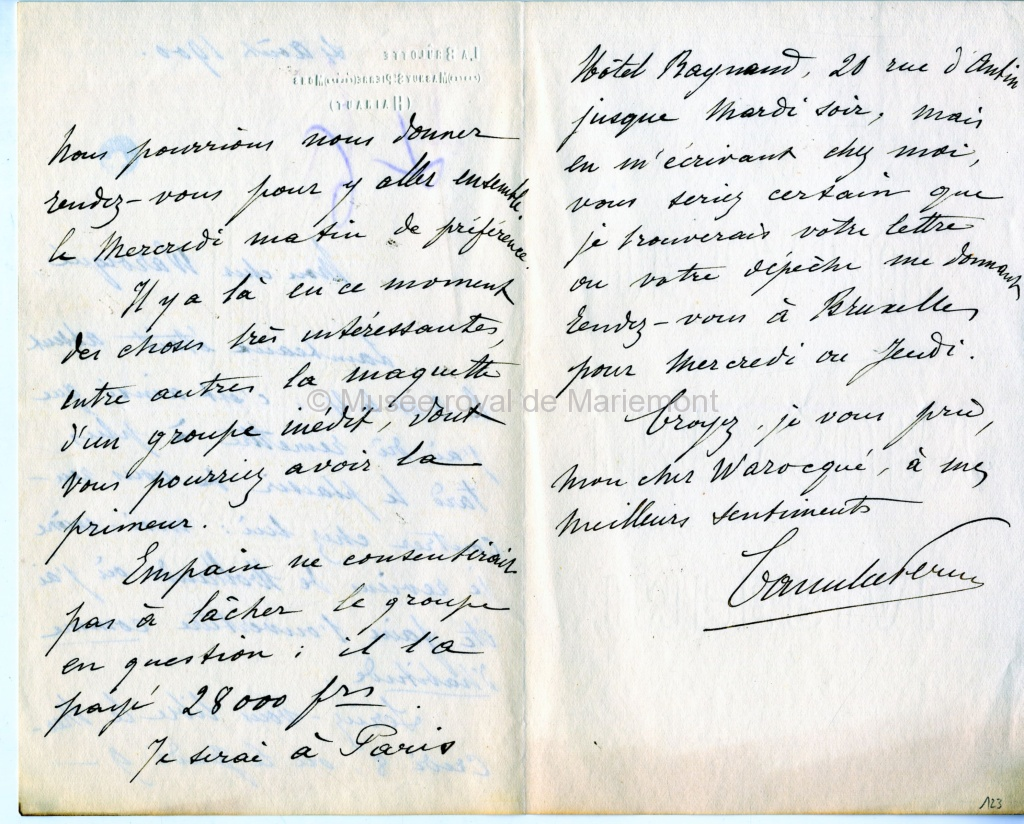 Nous pourrions nous donner
rendez-vous pour y aller ensemble
le Mercredi matin de préférence.
Il y a là en ce moment
des choses très intéressantes,
entre autres la maquette
d'un groupe inédit, dont
vous pourriez avoir la
primeur.
Empain ne consentirait
pas à lâcher le groupe
en question : il l'a
payé 28000 frs.
Je serai à Paris
Hôtel Raynaud, 20 rue d'Antin
jusque Mardi soir, mais
en m'écrivant chez moi,
vous seriez certain que
je trouverais votre lettre
ou votre dépêche me donnant
rendez-vous à Bruxelles
pour Mercredi ou Jeudi.
Croyez, je vous prie,
mon cher Warocqué, à mes
meilleurs sentiments
© Musée royal de Mariemont
123